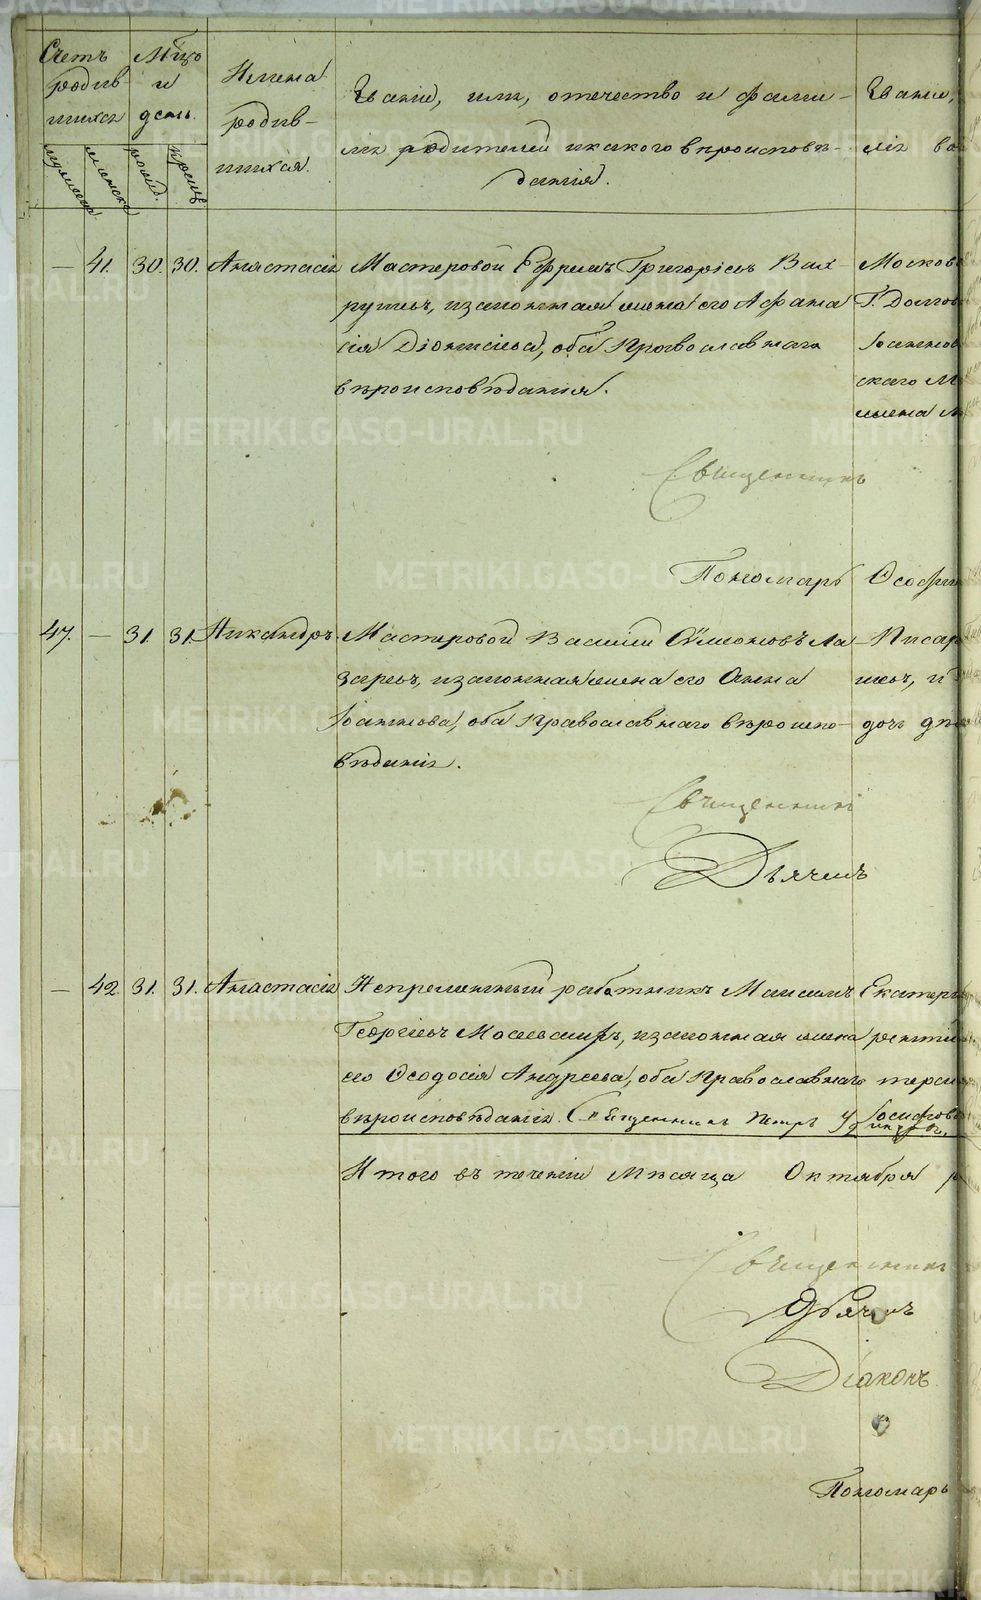 Счетъ родив- шихся
Мѣсяцъ и день.
Имена родив- шихся.
Званіе, имя, отечество и фами-
лія родителей и какого вѣроисповѣ-
данія.
Званіе,
лія во
мужеска
женска
рожд.
крещ.
— 41. 30. 30. Анастасія Мастеровой Ефремъ Григоріевъ Вах- Москов
рушевъ, и законная жена его Афана Г. Долгов
сія Діонисіева, оба Православнаго Іоаннов
вѣроисповѣданія. скаго М
жена
Священникъ
Пономарь Ѳеофи
47. — 31. 31. Никандръ. Мастеровой Василій Симеоновъ Ла- Писар
заревъ, и законная жена его Анна шевъ, и
Іоаннова, оба Православнаго вѣроиспо- дочь дѣ
вѣданія.
Священникъ
Дьячекъ
— 42. 31. 31. Анастасія Непремѣнный работникъ Максимъ Екатери
Георгіевъ Мосеевскихъ, и законная жена
его Ѳеодосія Андреева, оба Православнаго
вѣроисповѣданія. Священникъ Петръ
Итого въ теченіи Мѣсяца Октября р
Священникъ
Дьячекъ
Діаконъ
Пономарь
METRIKI.GASO-URAL.RU